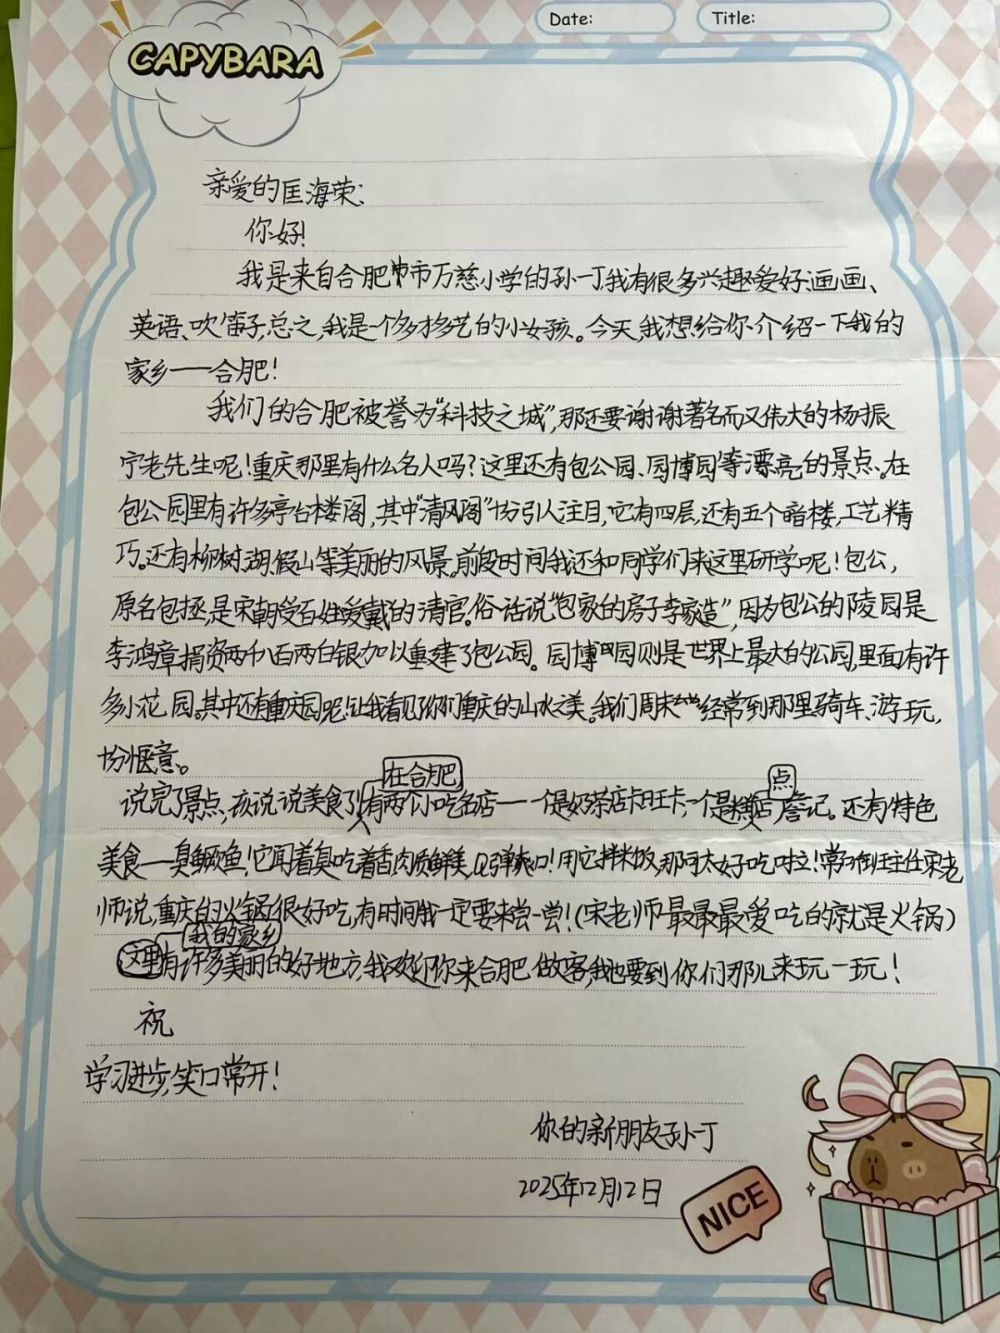 Date:
Title:
CAPYBARA
亲爱的匡海荣:
你好!
我是来自合肥市万慈小学的孙一丁,我有很多兴趣爱好:画画、
英语、吹笛子,总之,我是一个多才多艺的小女孩。今天,我想给你介绍一下我的
家乡——合肥!
我们的合肥被誉为“科技之城”,那还要谢谢著名而又伟大的杨振
宁老先生呢!重庆那里有什么名人吗?这里还有包公园、园博园等漂亮的景点。在
包公园里有许多亭台楼阁,其中“清风阁”十分引人注目,它有四层,还有五个暗楼,工艺精
巧。还有柳树、湖、假山等美丽的风景。前段时间我还和同学们来这里研学呢!包公,
原名包拯,是宋朝受百姓爱戴的清官。俗话说“包家的房子李家造”,因为包公的陵园是
李鸿章捐资两千八百两白银加以重建了包公园。园博园则是世界上最大的公园,里面有许
多小花园。其中还有重庆园呢!让我看见了你们重庆的山水之美。我们周末经常到那里骑车、游玩,
十分惬意。
在合肥
点
说完了景点,该说说美食了,有两个小吃名店——一个是奶茶店卡旺卡,一个是糕店詹记。还有特色
美食——臭鳜鱼!它闻着臭吃着香,肉质鲜美,Q弹爽口!用它拌米饭,那可太好吃啦!常听班主任宋老
师说,重庆的火锅很好吃,有时间我一定要来尝一尝!(宋老师最最最爱吃的就是火锅)
我的家乡
这里有许多美丽的好地方,我欢迎你来合肥做客,我也要到你们那儿来玩一玩!
祝
学习进步,笑口常开!
你的新朋友孙一丁
2025年12月12日
NICE